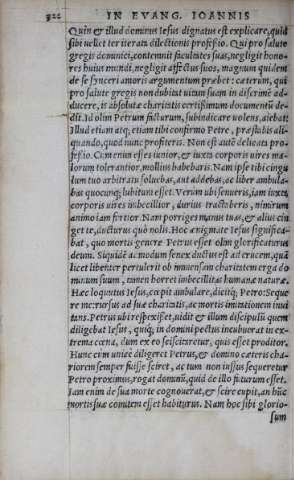 322 IN EVANG. IOANNIS
Quin & illud dominus Iesus dignatus est explicare, quid
sibi uelit ter iterata dilectionis professio. Qui pro salute
gregis dominici, contemnit facultates suas, negligit hono-
res huius mundi, negligit affectus suos, magnum quidem
de se synceri amoris argumentum præbet: cæterum, qui
pro salute gregis non dubitat uitam suam in discrimē ad-
ducere, is absolutæ charitatis certissimum documentū de-
dit. Id olim Petrum facturum, subindicare uolens, aiebat:
Illud etiam atq; etiam tibi confirmo Petre, præstabis ali-
quando, quod nunc profiteris. Non est autē delicata pro-
fessio. Cum enim esses iunior, & iuxta corporis uires ma-
lorum tolerantior, mollius habebaris. Nam ipse tibi cingu
lum tuo arbitratu soluebas, aut addebas, ac liber ambula-
bas quocunq; lubitum esset. Verum ubi senueris, iam iuxta
corporis uires imbecillior, durius tractaberis, nimirum
animo iam fortior. Nam porriges manus tuas, & alius cin
get te, ducturus quò nolis. Hoc ænigmate Iesus significa-
bat, quo mortis genere Petrus esset olim glorificaturus
deum. Siquidē ad eum modum senex ductus est ad crucem, quā
licet libenter pertulerit ob immensam charitatem erga do
minum suum, tamen horret imbecillitas humanæ naturæ.
Hæc loquutus Iesus, cœpit ambulare, dicēs Petro: Seque
re me: rursus ad suæ charitatis, ac mortis imitationem inui
tans. Petrus ubi respexisset, uidit & illum discipulū quem
diligebat Iesus, quiq; in domini pectus incubuerat in ex-
trema cœna, dum ex eo sciscitaretur, quis esset proditor.
Hunc cum unicè diligeret Petrus, & domino cæteris cha-
riorem semper fuisse sciret, ac tum non iussus sequeretur
Petro proximus, rogat dominū, quid de illo futurum esset.
Iam enim de sua morte cognouerat, & scire cupit, an hūc
mortis suæ comitem esset habiturus. Nam hoc sibi glorio-
sum